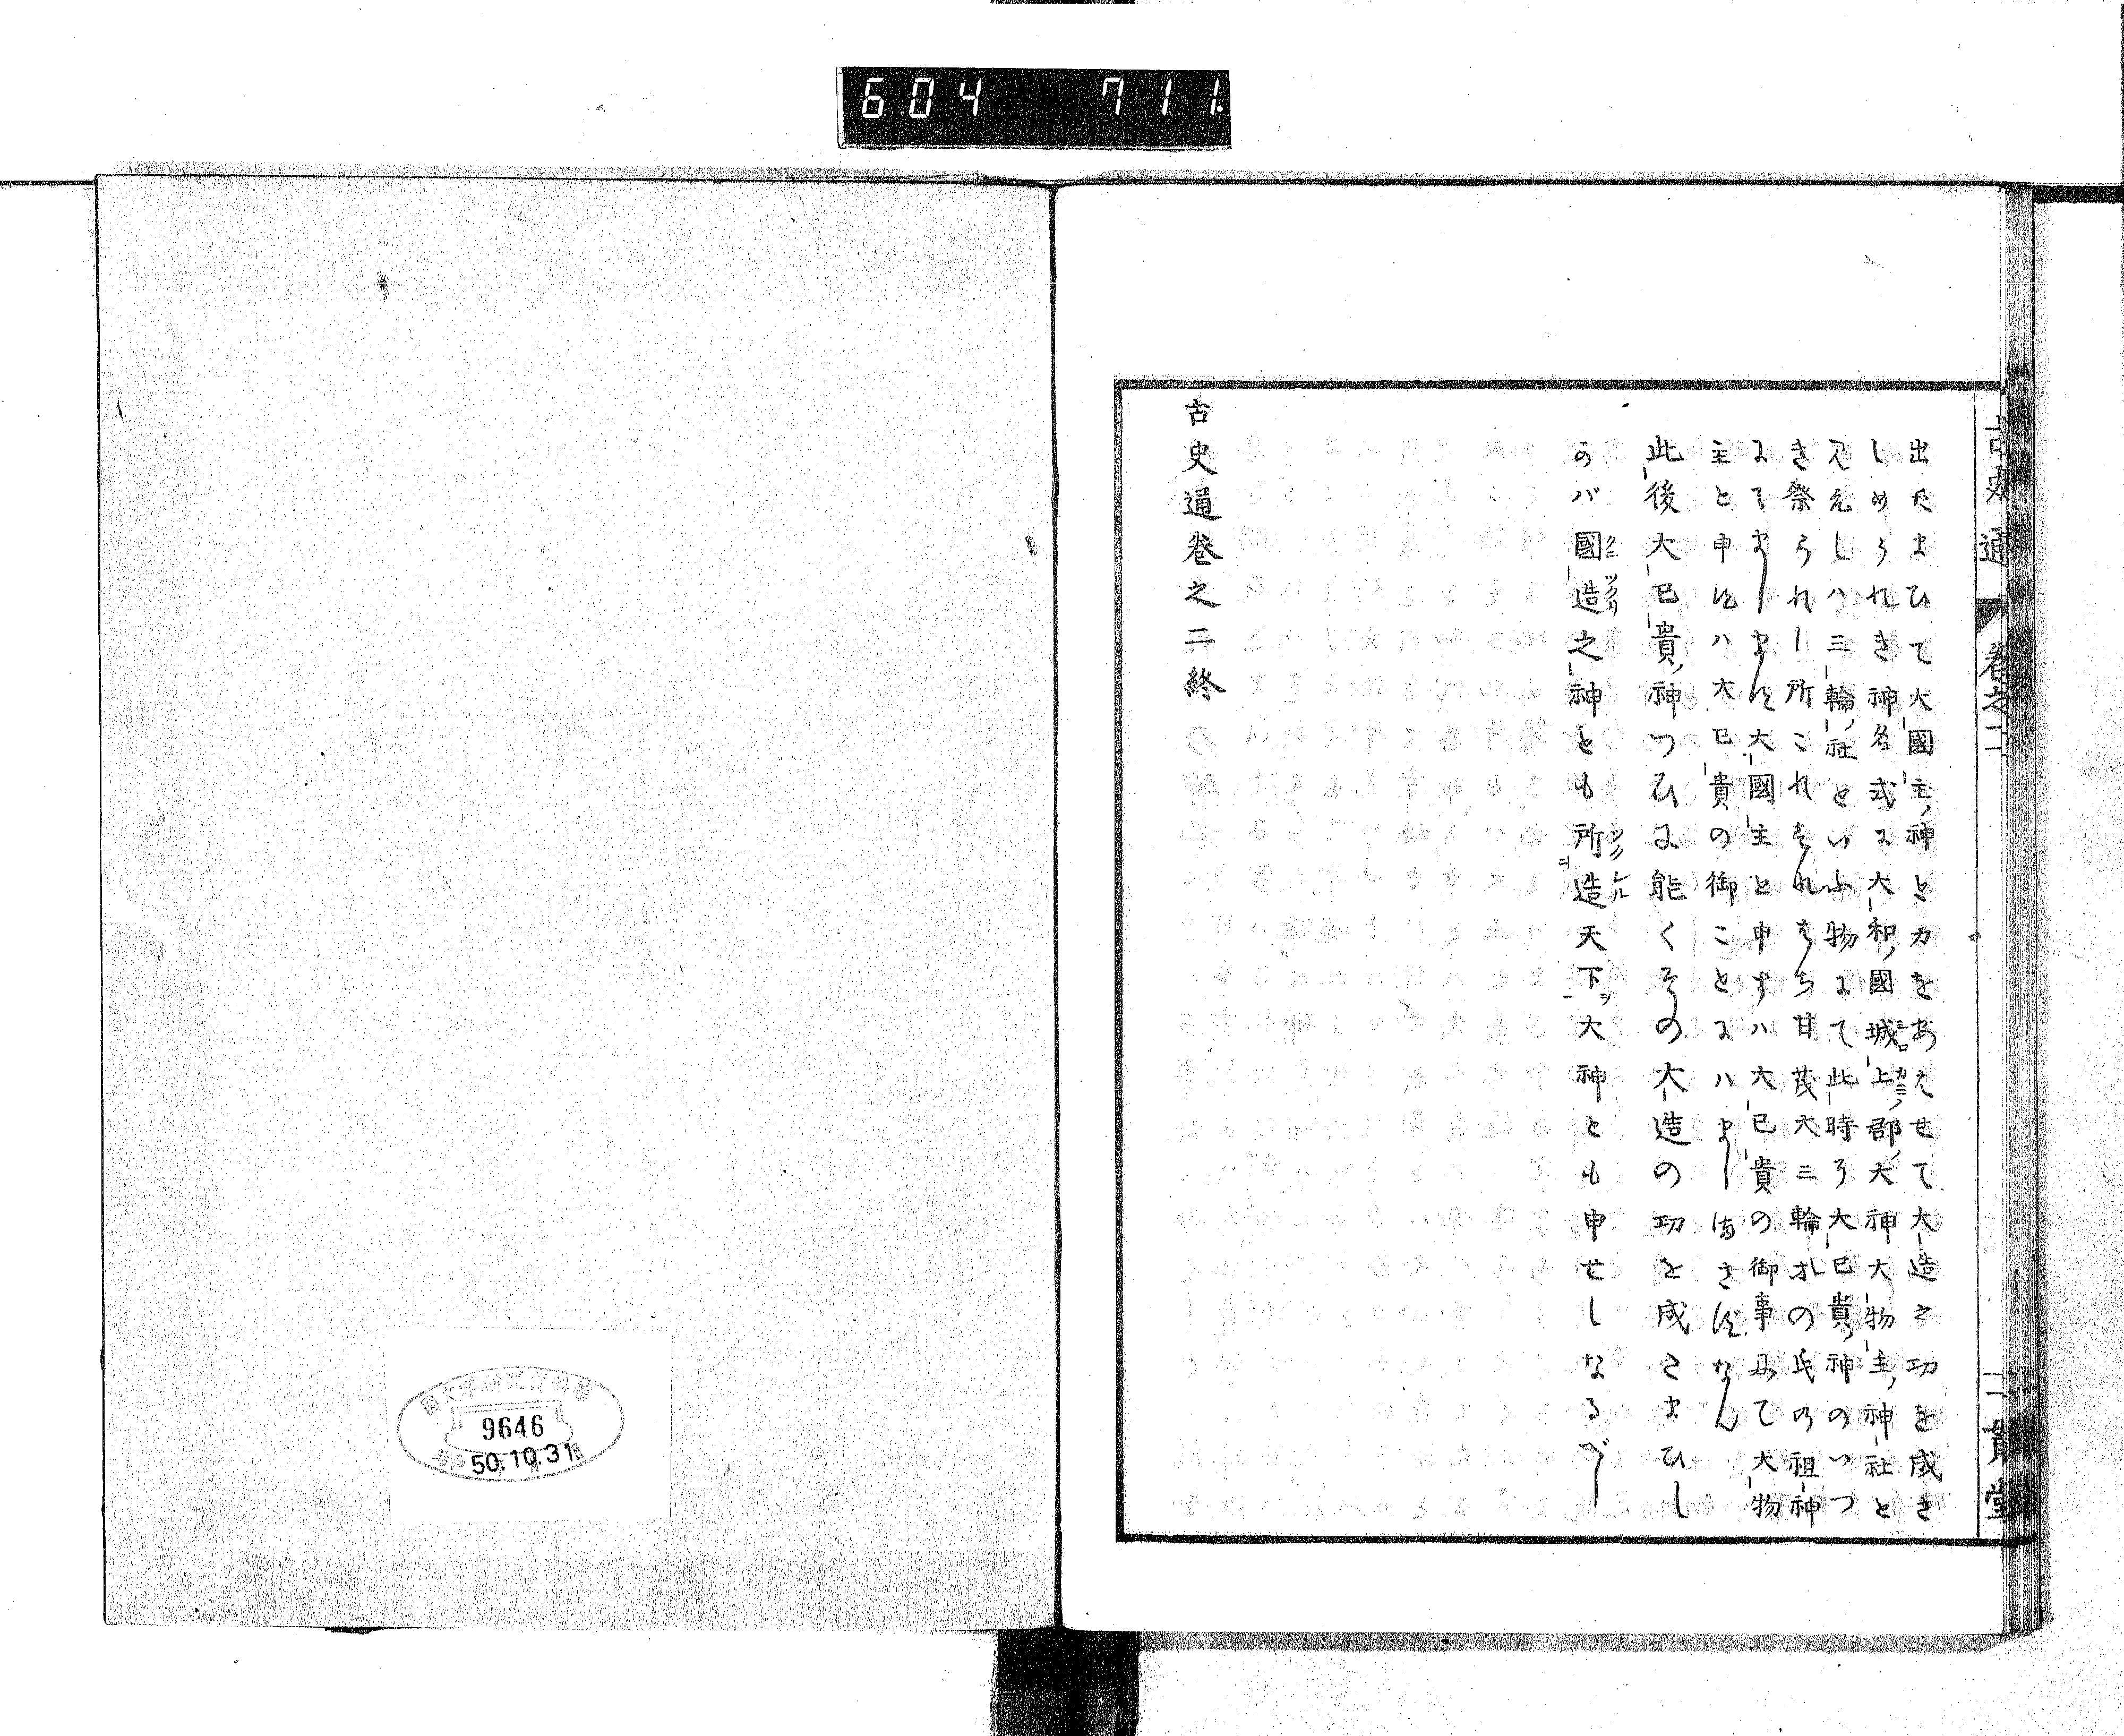 604 711.
古史通 卷之二
出たまひて大國主ノ神と力をあはせて大造之功を成さ
しめられき神名式に大和ノ國城上ノ郡ノ大神大物主ノ神社と
見えしハ三輪ノ社といふ物にて此時に大已貴ノ神のいつ
き祭られし所これ也すなハち甘茂大三輪才の氏の祖神
にてましますと大國主と申すハ大已貴の御事にて大物
主と申せハ大已貴の御ことにハましまさずなん
此後大已貴ノ神つひに能くその大造の功を成さまひし
かバ國造之神とも所造天下ヲ大神とも申せしなるべし
古史通卷之二終
9646
50.10.31